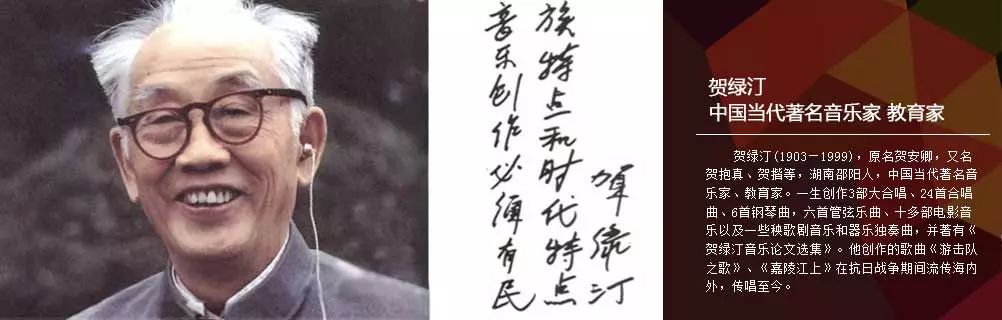 音乐创作必须有民
族特点和时代特点
贺绿汀
贺绿汀
中国当代著名音乐家 教育家
贺绿汀(1903—1999)，原名贺安卿，又名
贺抱真、贺揩等，湖南邵阳人，中国当代著名音
乐家、教育家。一生创作3部大合唱、24首合唱
曲、6首钢琴曲，六首管弦乐曲、十多部电影音
乐以及一些秧歌剧音乐和器乐独奏曲，并著有《
贺绿汀音乐论文选集》。他创作的歌曲《游击队
之歌》、《嘉陵江上》在抗日战争期间流传海内
外，传唱至今。